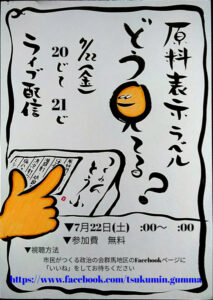 原料表示ラベル
どう見てる?
7/22(金)
20じ〜21じ
ライブ配信
とうふ
▼7月22日(土) :00〜 :00
▼参加費 無料
▼視聴方法
市民がつくる政治の会群馬地区のFacebookページに
「いいね」をしてお待ちください
https://www.facebook.com/tsukumin.gumma